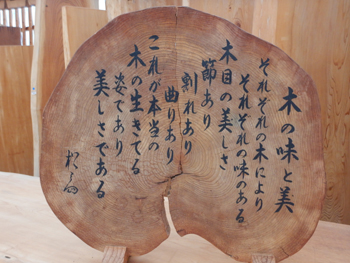 木の味と美
それぞれの木により
それぞれの味のある
木目の美しさ
節あり
割れあり
曲りあり
これが本当の
木の生きてる
姿であり
美しさである